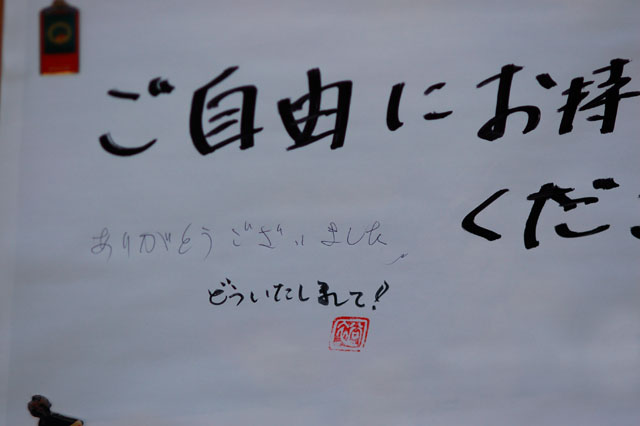 ご自由にお持
くださ
ありがとうございました
どういたしまして!!